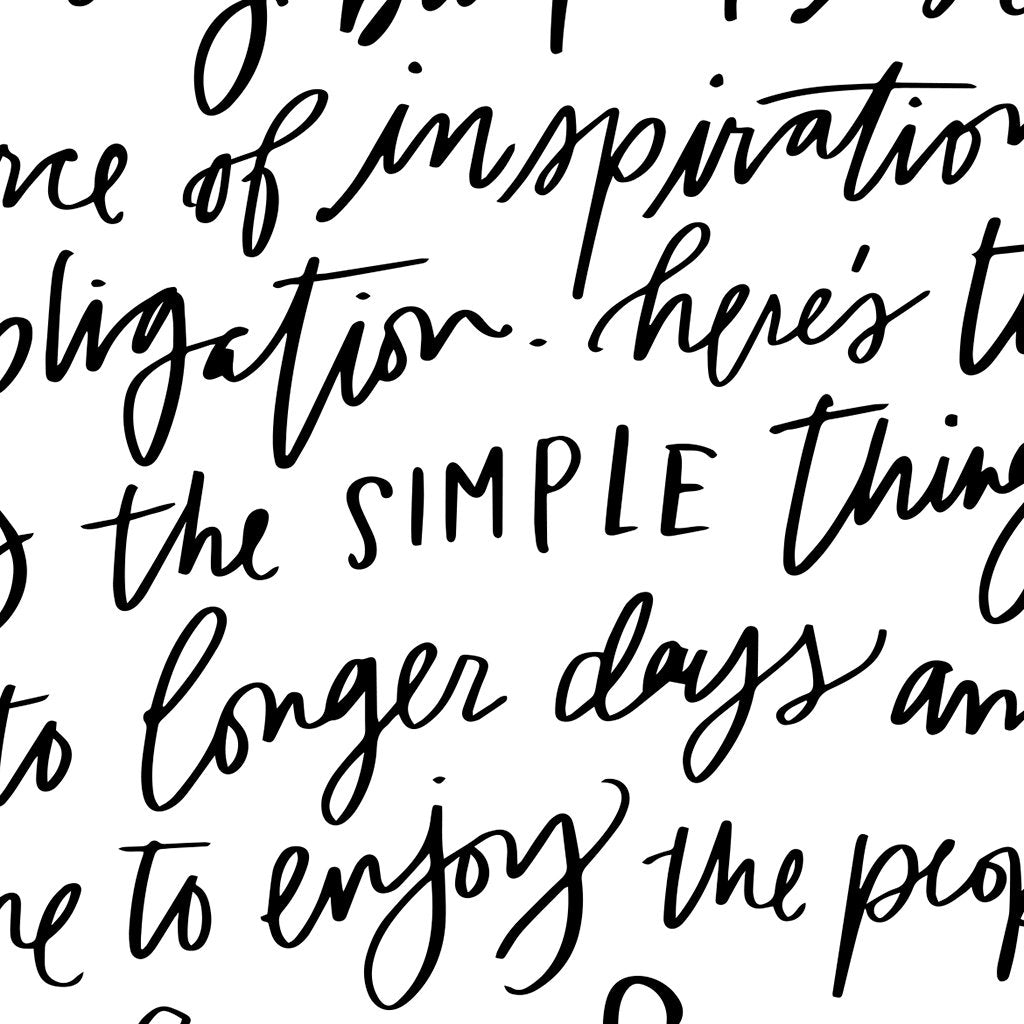 rce of inspiration
bligation. here's to
the SIMPLE thing
to longer days an
ne to enjoy the peop